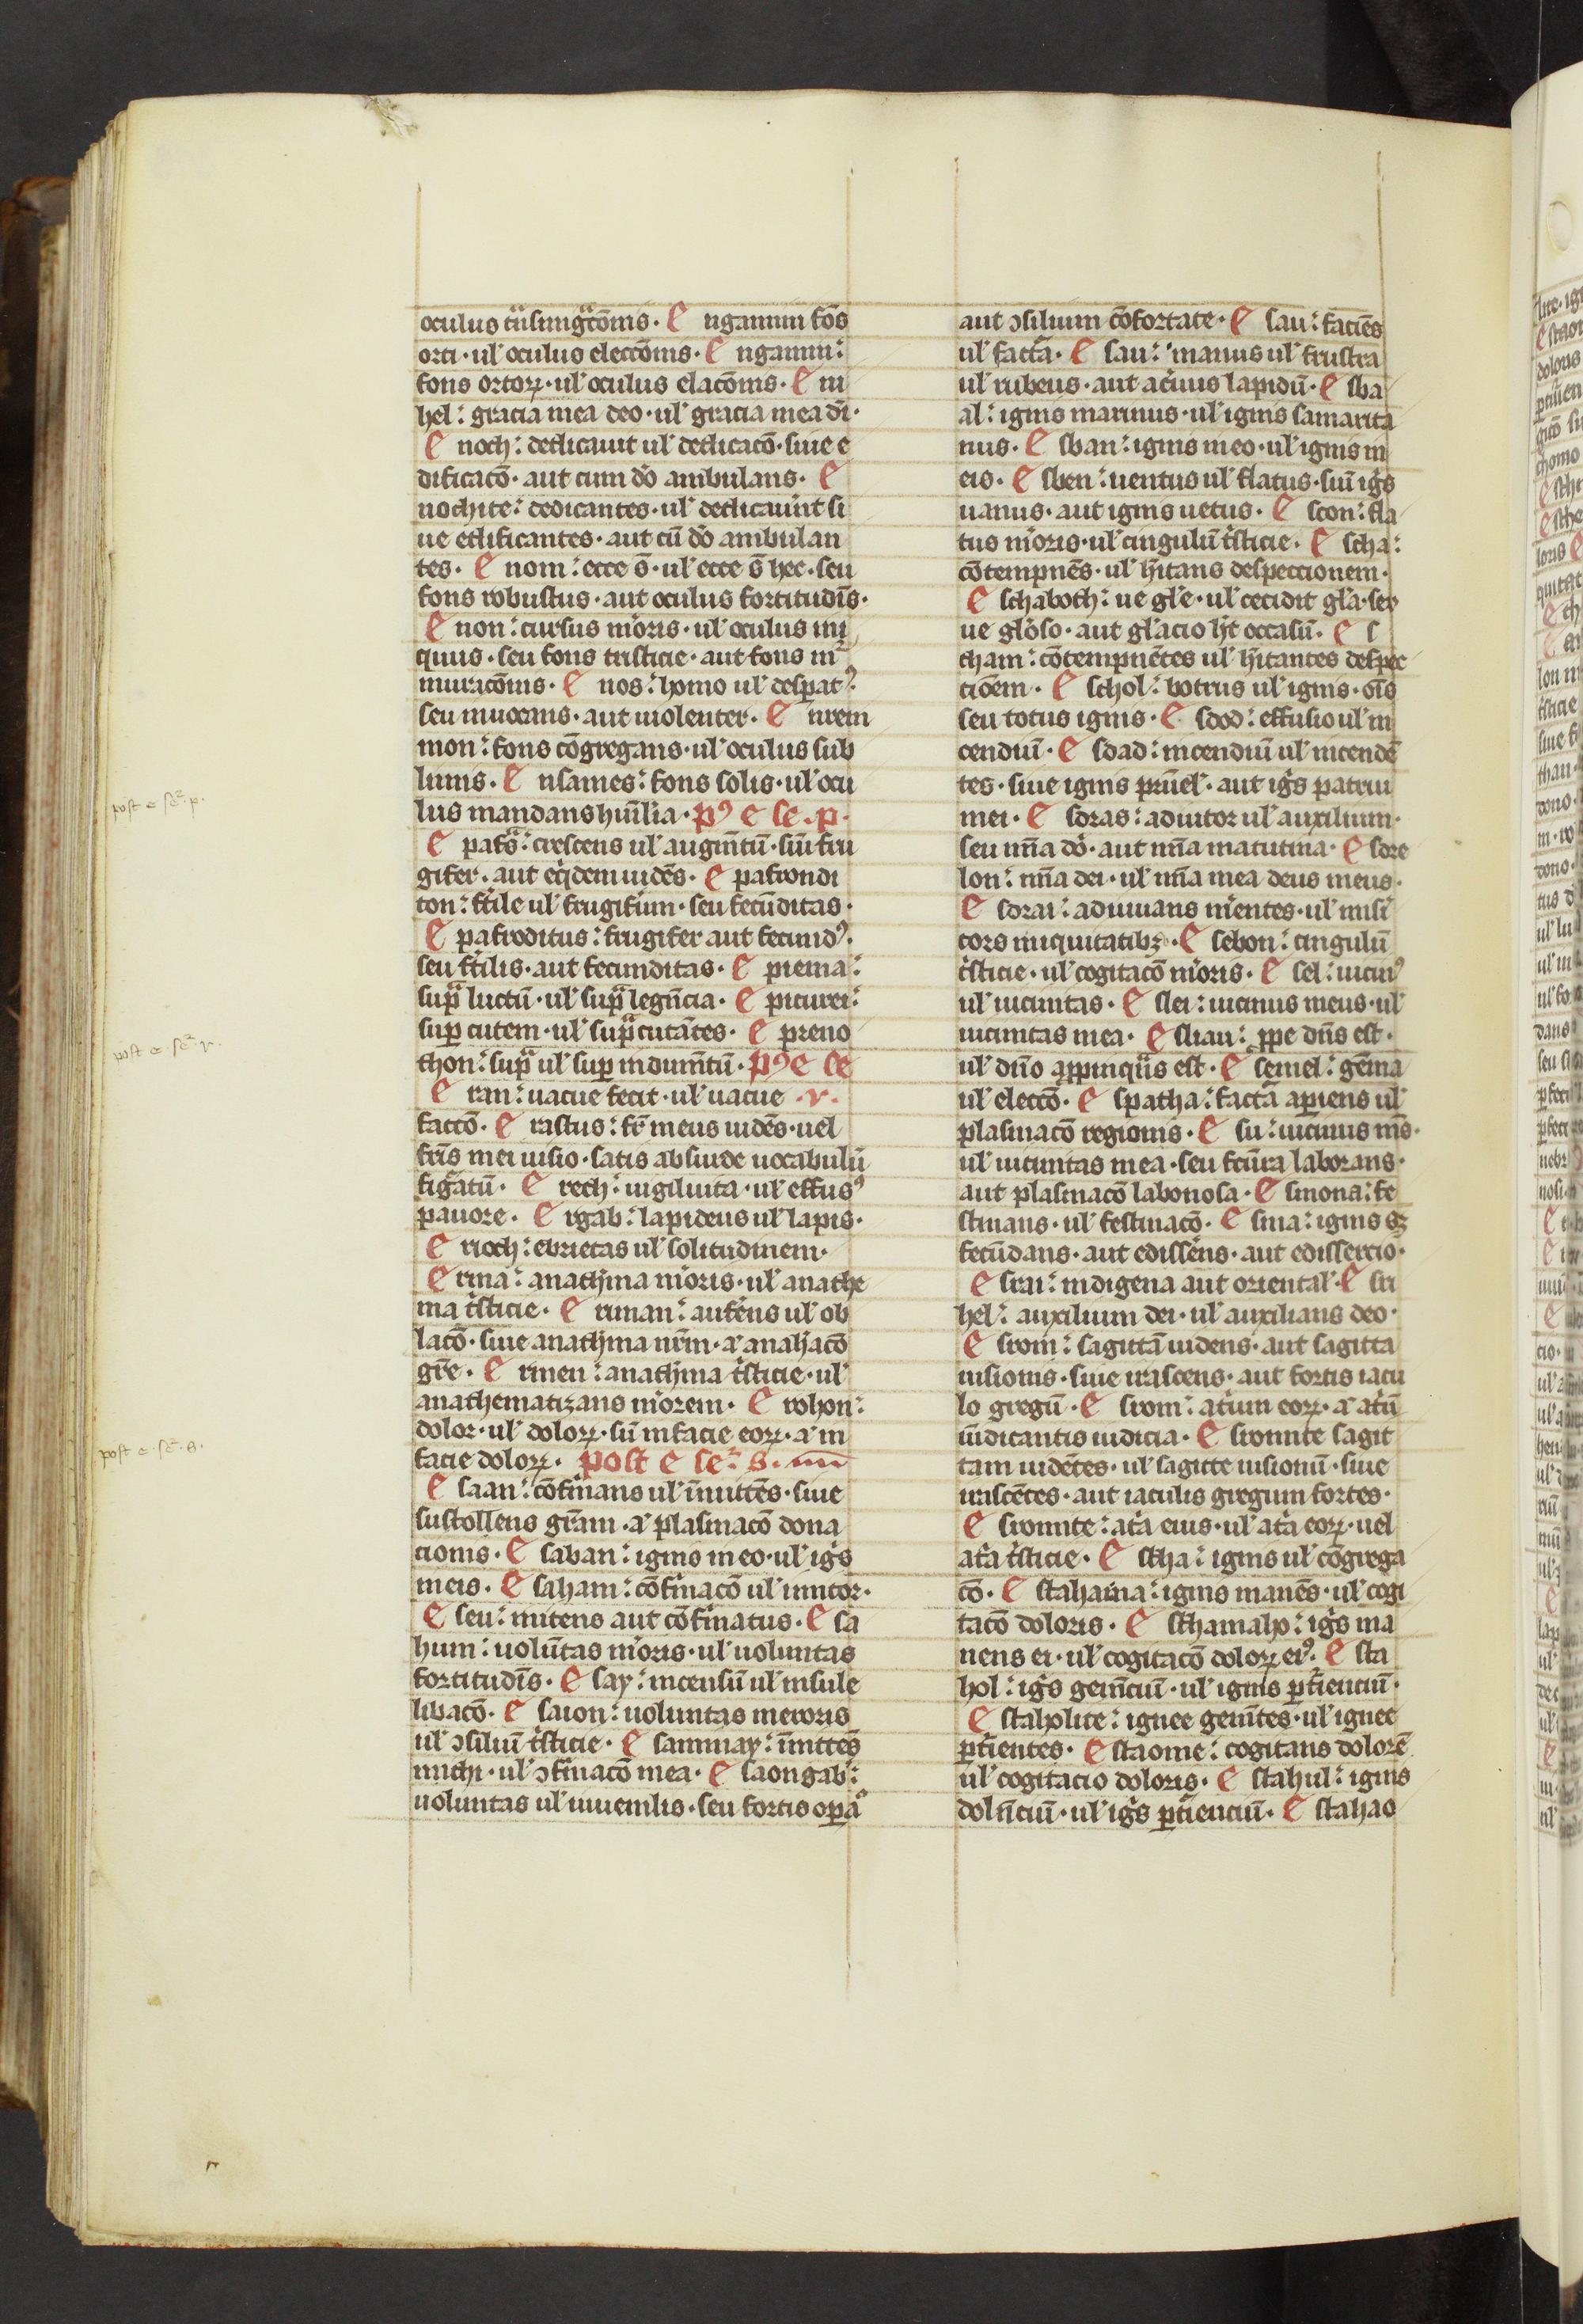 oculus t̄usmigᷓcōnis. E ngannim fōs
orti. ul' oculus elecc̄onis. E ngannim:
fons ortoꝝ. ul' oculus elac̄onis. E ni
hel: gracia mea deo. ul' gracia mea dī.
E noch: dedicauit ul' dedicac̄o. siue e
dificac̄o. aut cum dō ambulans. E
nochite: dedicantes. ul' dedicauīnt si
ue edificantes. aut cū dō ambulan
tes. E nom: ecce s̄. ul' ecce s̄ hec. seu
fons robustus. aut oculus fortitudīs.
E non: cursus m̄oris. ul' oculus ini
quus. seu fons tristicie. aut fons m
murac̄onis. E nos: homo ul' despatꝰ.
seu iniocans. aut uiolenter. E nrem
mon: fons cōgregans. ul' oculus sub
limis. E nsames: fons solis. ul' ocu
lus mandans hum̄lia. pꝰ e se. p.
E pafᷓs: crescens ul' augm̄tū. siū fru
gifer. aut eqͥdem uidēs. E pafrondi
ton: f̄tile ul' frugifum. seu fecūditas.
E pafroditus: frugifer aut fecundꝰ.
seu f̄tilis. aut fecunditas. E piema:
supᷓ luctū. ul' supᷓ legn̄cia. E picurei:
super cutem. ul' supᷓ cutātes. E preno
thon: supᷓ ul' super indum̄tū. pꝰ e se
E ran: uacue fecit. ul' uacue .r.
facc̄o. E rastus: fr̄ meus uidēs. uel
fr̄is mei uisio. satis absurde uocabulū
figᷓtū. E rech: uigil uita. ul' effusꝰ
pauore. E rgab: lapideus ul' lapis.
E rioch: ebrietas ul' solitudinem.
E rma: anath̄ma m̄oris. ul' anathe
ma tͥsticie. E rman: aufēns ul' ob
lac̄o. siue anath̄ma nr̄m. aᷓ anath̄ac̄o
gr̄e. E rmen: anath̄ma tͥsticie. ul'
anathematizans m̄orem. E rohon:
dolor. ul' doloꝝ. sū in facie eoꝝ. aᷓ in
facie doloꝝ. post e se: s.
E saan: cōfͥmans ul' īnitēs. siue
sustollens gr̄am. aᷓ plasmac̄o dona
cionis. E saban: ignis in eo. ul' igͥs
in eis. E saham: cōfͥmac̄o ul' innitor.
E seu: nitens aut cōfͥmatus. E sa
hum: uolūtas m̄oris. ul' uoluntas
fortitudīs. E say: incensū ul' insule
libac̄o. E saion: uoluntas meroris
ul' ↄsiliū tͥsticie. E sammay: īnitēs
michi. ul' ↄfͥmac̄o mea. E saongab:
uoluntas ul' iuuenilis. seu fortis opᷓa
aut ↄsilium cōfortate. E sau: faciēs
ul' facta. E sau: manus ul' frustra
ul' rubeus. aut ac̄uus lapidū. E sba
al: ignis marinus. ul' ignis samarita
nus. E sban: ignis in eo. ul' ignis in
eis. E sben: uentus ul' flatus. siū igͥs
uanus. aut ignis uetus. E scon: fla
tus m̄oris. ul' cingulū tͥsticie. E scha:
cōtempnēs. ul' hītans despeccionem.
E schaboth: ue gl'e. ul' cecidit gl'a. seu
ue gl'oso. aut gl'acio hīt occasū. E s
cham: cōtempnētes ul' hītantes despec
ciōem. E schol: botrus ul' ignis. oīs
seu totus ignis. E sdod: effusio ul' in
cendiū. E sdad: incendiū ul' incendē
tes. siue ignis pr̄uel'. aut igͥs patrui
mei. E sdras: adiutor ul' auxilium.
seu mīa dō. aut mīa matutina. E sdre
lon: mīa dei. ul' mīa mea deus meus.
E sdrai: adiuuans m̄entes. ul' misͥ
cors iniquitatibꝫ. E sebon: cingulū
tͥsticie. ul' cogitac̄o m̄oris. E sel: uicinꝰ
ul' uicinitas. E slei: uicinus meus. ul'
uicinitas mea. E sliau: ꝓpe dn̄s est.
ul' dn̄o aꝓpinqͥus est. E semel: gēma
ul' elecc̄o. E spatha: factā apīens ul'
plasmac̄o regionis. E su: uicinus m̄s.
ul' uicinitas mea. seu fcūra laborans.
aut plasmac̄o laboriosa. E smona: fe
stinans. ul' festinac̄o. E sma: ignis sꝫ
fecūdans. aut edissēns. aut edissercio.
E srai: indigena aut oriental'. E sri
hel: auxilium dei. ul' auxilians deo.
E srom: sagittā uidens. aut sagitta
uisionis. siue irascens. aut fortis iacu
lo gregū. E srom: atͥum eoꝝ. aᷓ atͥū
iūdicantis iudicia. E sromite sagit
tam uidētes. ul' sagitte uisionū. siue
irascētes. aut iaculis gregum fortes.
E sromite: atͥa eius. ul' atͥa eoꝝ. uel
atͥa tͥsticie. E stha: ignis ul' cōgrega
c̄o. E stahama: ignis manēs. ul' cogi
tac̄o doloris. E sthamaho: igͥs ma
nens ei. ul' cogitac̄o doloꝝ eiꝰ. E sta
hol: igͥs gem̄ciū. ul' ignis ꝑt̄ienciū.
E staholite: ignee gem̄tes. ul' ignee
ꝑt̄ientes. E staome: cogitans dolorē
ul' cogitacio doloris. E stahul: ignis
doln̄ciū. ul' igͥs ꝑt̄ienciū. E stahao
post e se. p.
post e se. r.
post e. se. s.